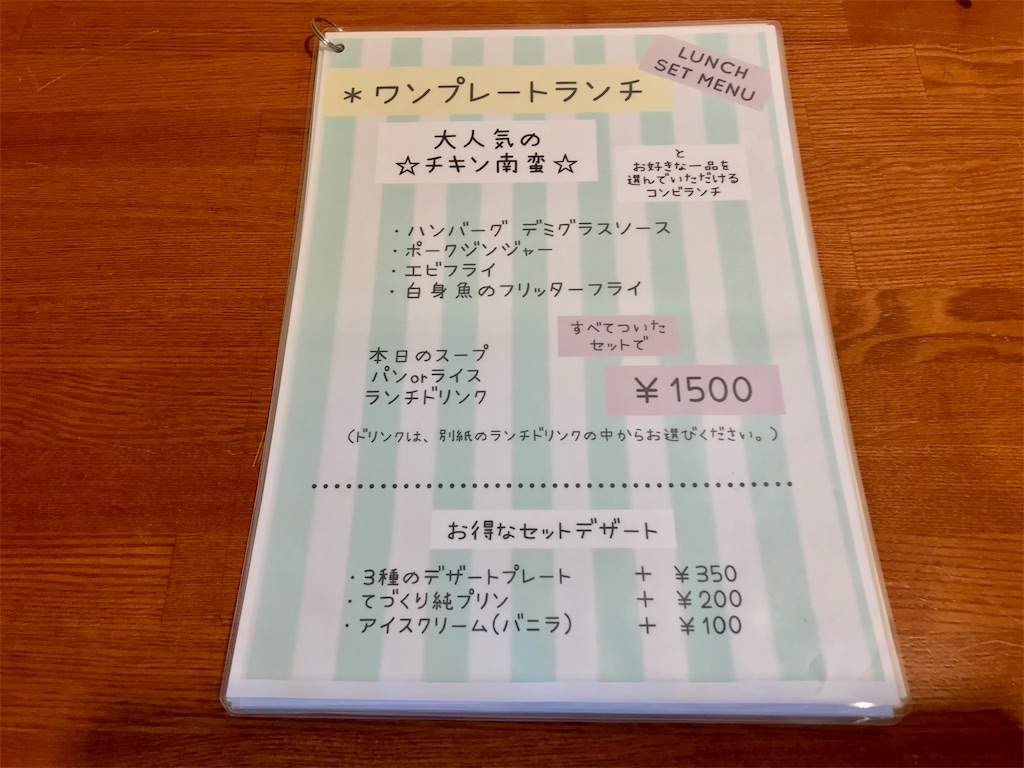 LUNCH
SET MENU
＊ワンプレートランチ
大人気の
☆チキン南蛮☆
と
お好きな一品を
選んでいただける
コンビランチ
・ハンバーグ デミグラスソース
・ポークジンジャー
・エビフライ
・白身魚のフリッターフライ
すべてついた
セットで
本日のスープ
パンorライス
ランチドリンク
￥1500
（ドリンクは、別紙のランチドリンクの中からお選びください。）
お得なセットデザート
・3種のデザートプレート ＋ ￥350
・てづくり純プリン ＋ ￥200
・アイスクリーム（バニラ） ＋ ￥100